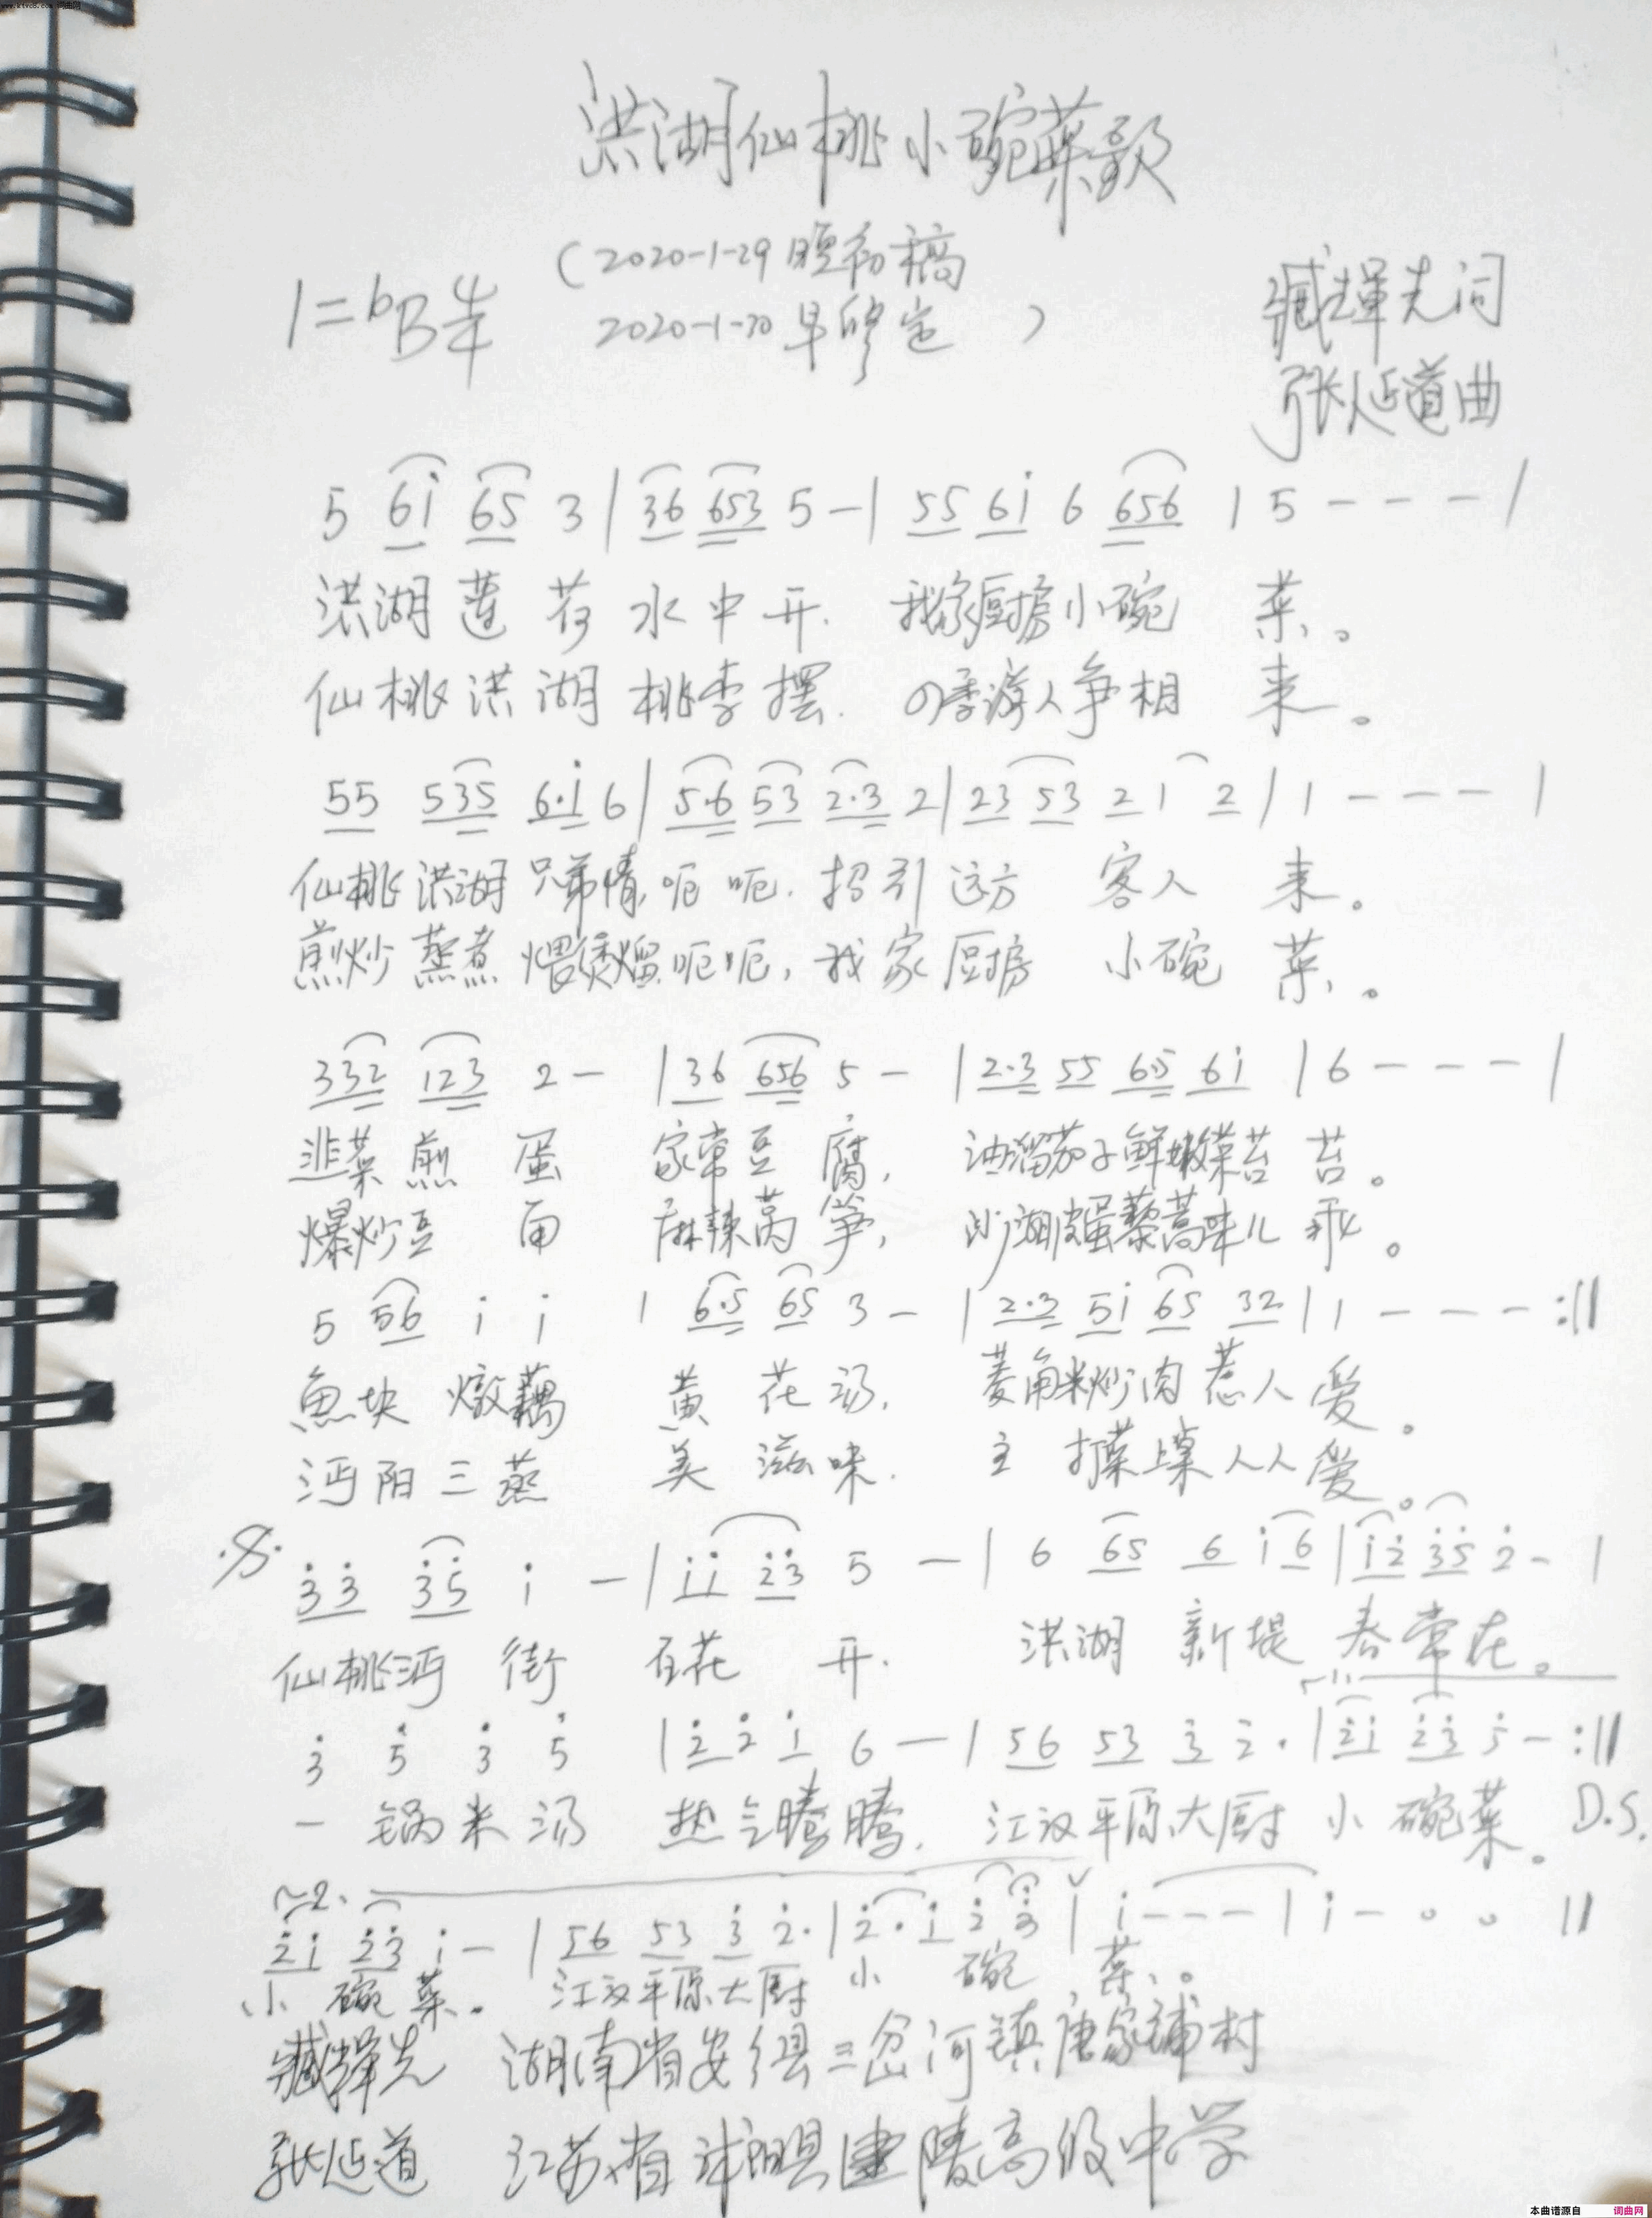 www.ktvc8.com 词曲网
洪湖仙桃小碗菜歌
(2020-1-29晚初稿
1=bB 4/4
2020-1-30早修定)
臧辉先词
张延道曲
5 6i 65 3 | 36 653 5 - | 55 6i 6 656 | 5 - - - |
洪湖莲花水中开. 我家厨房小碗菜。
仙桃洪湖桃李摆. 四季游人争相来。
55 535 6·i 6 | 5·6 53 2·3 2 | 23 53 2 1 2 | 1 - - - |
仙桃洪湖兄弟情,呃呃. 招引远方客人来。
煎炒蒸煮煨煲熘,呃呃, 我家厨房小碗菜。
332 123 2 - | 36 656 5 - | 2·3 55 6·5 6i | 6 - - - |
韭菜煎蛋 家常豆腐, 油溜茄子鲜嫩菜苔苔。
爆炒豆 角 麻辣莴笋, 沙湖皮蛋藜蒿味儿乖。
5 56 i i | 6·5 65 3 - | 2·3 5i 65 32 | 1 - - - :||
鱼块燉藕 黄花汤, 菱角米炒肉惹人爱。
沔阳三蒸 美滋味. 主打菜上桌人人爱。
33 35 i - | ii 23 5 - | 6 65 6 i6 | i2 35 2 - |
仙桃沔街百花开. 洪湖新堤春常在。
3 5 3 5 | 2 2 i 6 - | 56 53 3 2· | 2i 23 5 - :||
一锅米汤 热气腾腾, 江汉平原大厨小碗菜。 D.S.
2.
2i 23 i - | 56 53 3 2· | 2·i 2 3 | i - - - | i - 0 0 ||
小碗菜。 江汉平原大厨 小碗菜。
臧辉先 湖南省安乡县三岔河镇唐家铺村
张延道 江苏省沭阳县建陵高级中学
本曲谱源自 词曲网